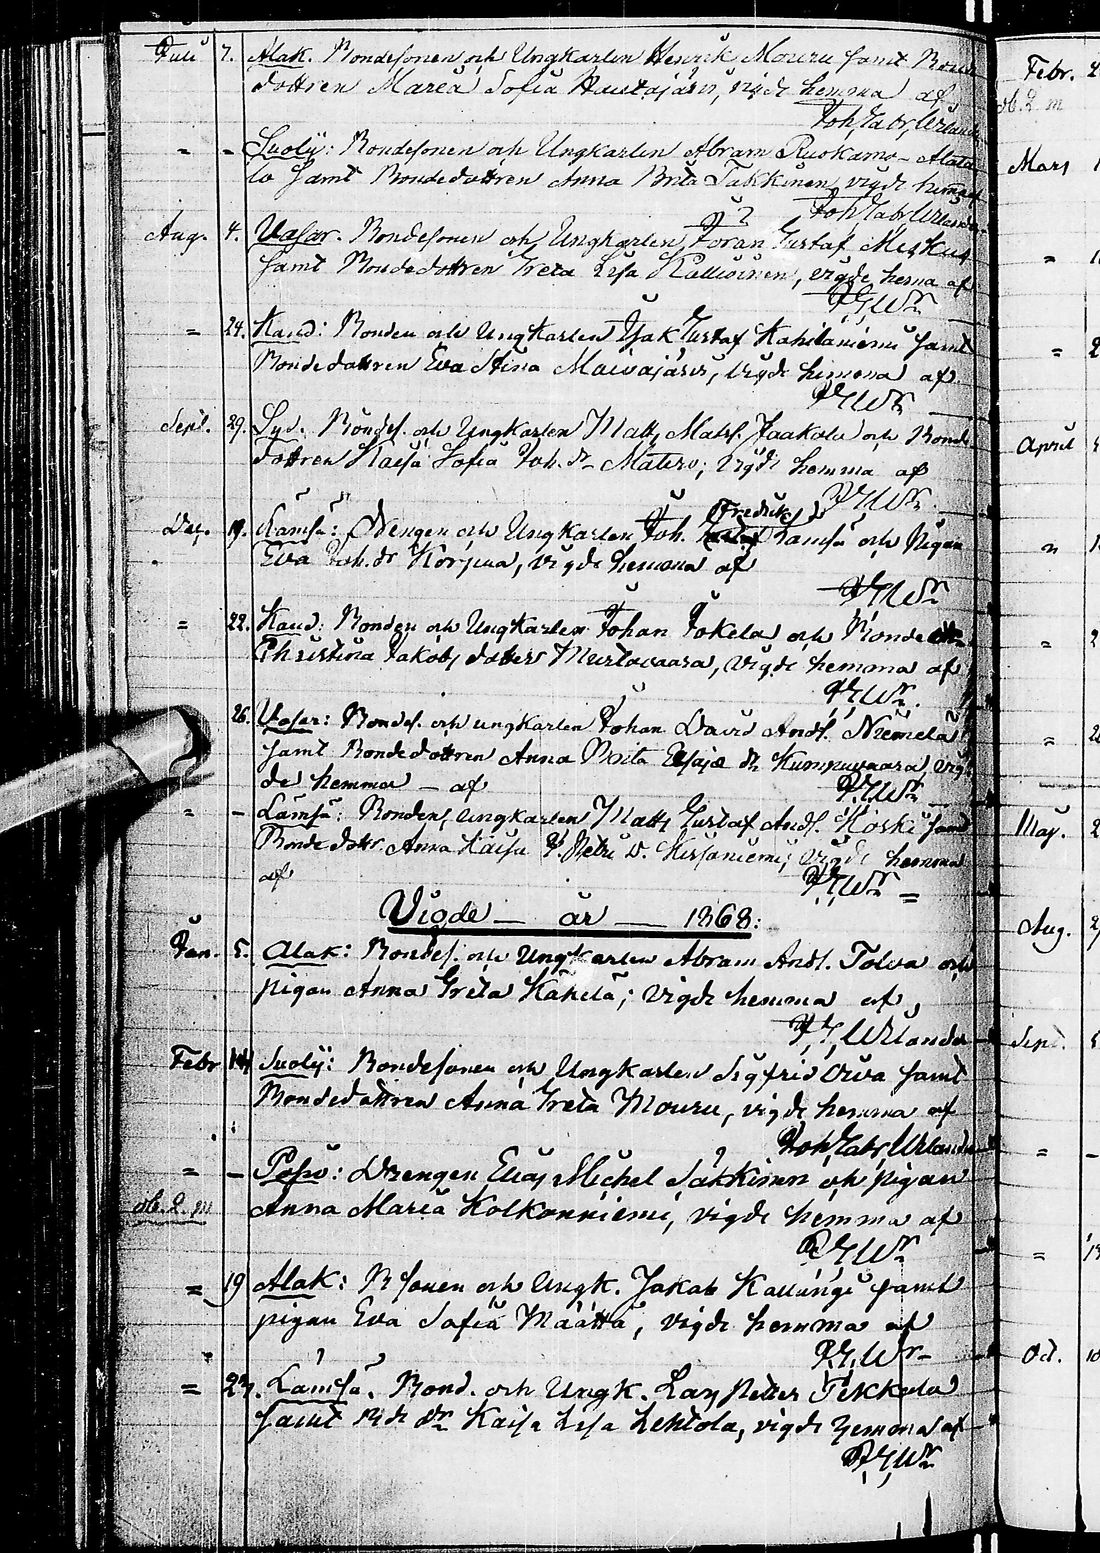 Juli 7. Alak. Bondesonen och Ungkarlen Henrik Mouru samt Bonde
dottren Maria Sofia Hautajärvi, vigde hemma af
Joh. Gabr. Wrlander
" - Suolij: Bondesonen och Ungkarlen Abram Ruokamo-Alata
lo samt Bondedottren Anna Brita Takkinen, vigde hemma af
Joh. Gabr. Wrlander
Aug. 4. Vasar. Bondesonen och Ungkarlen Göran Gustaf
samt Bondedottren Greta Lisa Kallioinen, vigde hemma af
J. G. Wr
= 24. Kand: Bonden och Ungkarlen Isak Gustaf Kahilaniemi samt
Bondedottren Eva Stina Maivajärvi, vigde hemma af
J. G. Wr
Sept. 29. Bondes. och Ungkarlen Matts Matss. Jaakola och Bonde
dottren Kaisa Sofia Joh. dr Matero; vigde hemma af
J. G. Wr.
Dec. 19. Lämsä: Drengen och Ungkarlen Joh. Fredrik Lämsä och Pigan
Eva Joh. dr Korpua, vigde hemma af
J. G. Wr
= 22. Kand: Bonden och Ungkarlen Johan Jokela och Bonde
Christina Jakobs dotter Murtovaara, vigde hemma af
J. G. Wr.
26. Vasar: Bondes. och ungkarlen Johan David Ands. Niemelä
samt Bondedottren Anna Brita Esajæ dr Kumpuvaara, vig
de hemma - af J. G. Wr
" - Lämsä: Bonden, Ungkarlen Matts Gustaf Ands. Koski samt
Bondedottr. Anna Kaisa Petri D. Hirsiniemi; vigde hemma
af J. G. Wr =
Vigde — år — 1868:
Jan. 5. Alak: Bondes. och Ungkarlen Abram Ands. Tolva och
pigan Anna Greta Käkelä; vigde hemma af,
J. G. Wrlander
Febr. 14 Suolij: Bondesonen och Ungkarlen Sigfrid Oiva samt
Bondedottren Anna Greta Mouru, vigde hemma af
Joh. Gabr. Wrlander
= - Posio: Drengen Elias Michel Säkkinen och pigan
ob. 2. m Anna Maria Kolkonniemi, vigde hemma af
J. G. Wr
= 19 Alak: B sonen och Ungk. Jakob Kallungi samt
pigan Eva Sofia Määttä, vigde hemma af
J. G. Wr-
= 27. Lämsä. Bond. och Ungk. Lars Petter Tekkala
samt Bde dr Kaisa Lisa Lehtola, vigde hemma af
J. G. Wr
Febr.
ob. 2 m
Mars
"
"
April
"
"
"
Maj.
Aug.
Sept.
"
"
Oct. 10